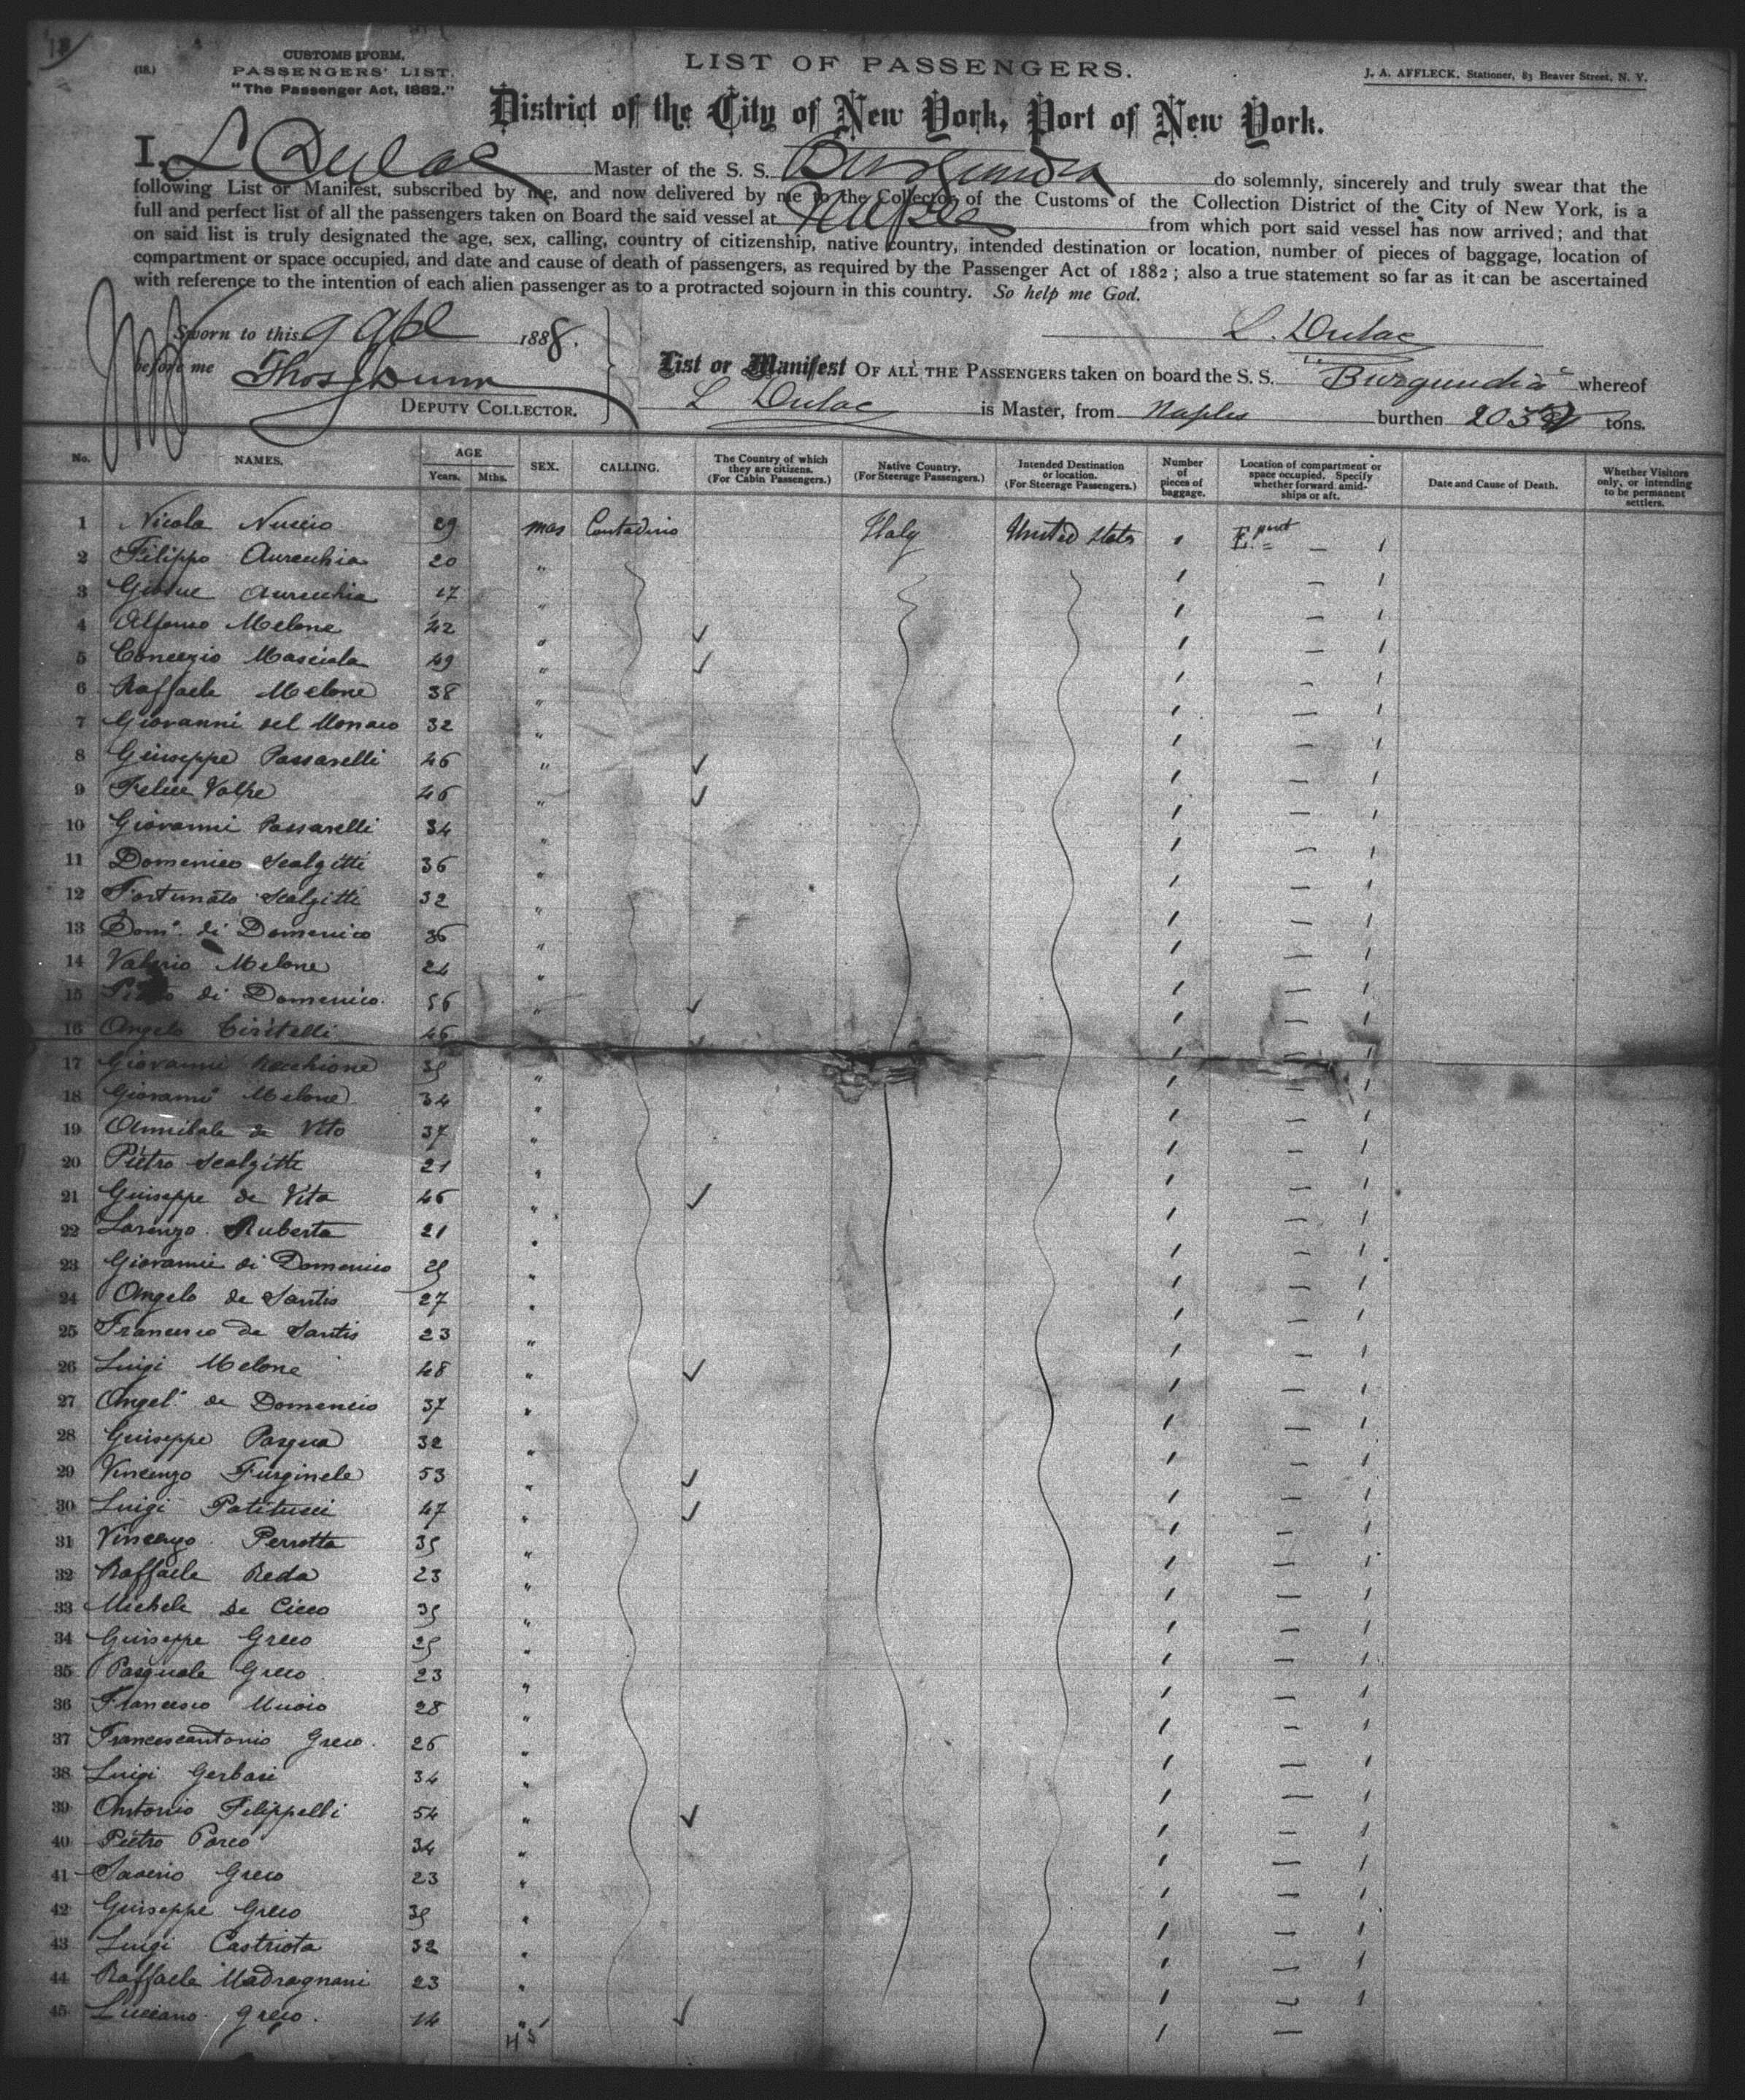 18
CUSTOMS FORM.
(18.) PASSENGERS' LIST.
"The Passenger Act, 1882."
LIST OF PASSENGERS.
J. A. AFFLECK, Stationer, 83 Beaver Street, N. Y.
District of the City of New York, Port of New York.
I, L Dulac Master of the S. S. Burgundia do solemnly, sincerely and truly swear that the
following List or Manifest, subscribed by me, and now delivered by me to the Collector of the Customs of the Collection District of the City of New York, is a
full and perfect list of all the passengers taken on Board the said vessel at Naples from which port said vessel has now arrived; and that
on said list is truly designated the age, sex, calling, country of citizenship, native country, intended destination or location, number of pieces of baggage, location of
compartment or space occupied, and date and cause of death of passengers, as required by the Passenger Act of 1882; also a true statement so far as it can be ascertained
with reference to the intention of each alien passenger as to a protracted sojourn in this country. So help me God.
Sworn to this 9 Apl 1888.
L. Dulac
before me Thos Dunn
DEPUTY COLLECTOR.
List or Manifest OF ALL THE PASSENGERS taken on board the S. S. "Burgundia" whereof
L Dulac is Master, from Naples burthen tons.
No. NAMES. AGE Years. Mths. SEX. CALLING. The Country of which they are citizens. (For Cabin Passengers.) Native Country. (For Steerage Passengers.) Intended Destination or location. (For Steerage Passengers.) Number of pieces of baggage. Location of compartment or space occupied. Specify whether forward, amidships or aft. Date and Cause of Death. Whether Visitors only, or intending to be permanent settlers.
1 Nicola Nuccio 29 mas Contadino Italy United States 1 E.pont — 1
2 Filippo Aurecchia 20 " 1 — 1
3 Giosue Aurecchia 17 " 1 — 1
4 Alfonso Melone 42 " ✓ 1 — 1
5 Concezio Masciola 49 " ✓ 1 — 1
6 Raffaele Melone 38 " 1 — 1
7 Giovanni del Monaco 32 " 1 — 1
8 Giuseppe Passarelli 46 " ✓ 1 — 1
9 Felice Volpe 46 " ✓ 1 — 1
10 Giovanni Passarelli 34 " 1 — 1
11 Domenico Scalzitti 36 " 1 — 1
12 Fortunato Scalzitti 32 " 1 — 1
13 Domo. di Domenico 36 " 1 — 1
14 Valerio Melone 24 " 1 — 1
15 di Domenico 56 " ✓ 1 — 1
16 Angelo Civitelli 46 1 — 1
17 Giovanni Recchione 39 " 1 — 1
18 Giovanni Melone 34 " 1 — 1
19 Annibale de Vito 37 " 1 — 1
20 Pietro Scalzitti 21 " 1 — 1
21 Guiseppe de Vita 46 " ✓ 1 — 1
22 Lorenzo Ruberta 21 " 1 — 1
23 Giovanni di Domenico 29 " 1 — 1
24 Angelo de Santis 27 " 1 — 1
25 Francesco de Santis 23 " 1 — 1
26 Luigi Melone 48 " ✓ 1 — 1
27 Angelo de Domenico 37 " 1 — 1
28 Guiseppe Pasqua 32 " 1 — 1
29 Vincenzo Furginele 53 " ✓ 1 — 1
30 Luigi Patitucci 47 " ✓ 1 — 1
31 Vincenzo Perrotta 39 " 1 — 1
32 Raffaele Reda 23 " 1 — 1
33 Michele De Cicco 39 " 1 — 1
34 Guiseppe Greco 29 " 1 — 1
35 Pasquale Greco 23 " 1 — 1
36 Francesco Muoio 28 " 1 — 1
37 Francescantonio Greco 26 " 1 — 1
38 Luigi Gerbasi 34 " 1 — 1
39 Antonio Filippelli 54 " ✓ 1 — 1
40 Pietro Porco 34 " 1 — 1
41 Saverio Greco 23 " 1 — 1
42 Guiseppe Greco 39 " 1 — 1
43 Luigi Castriota 32 " 1 — 1
44 Raffaele Madragnani 23 " 1 — 1
45 Luciano Greco. 14 " ✓ 1 —
45